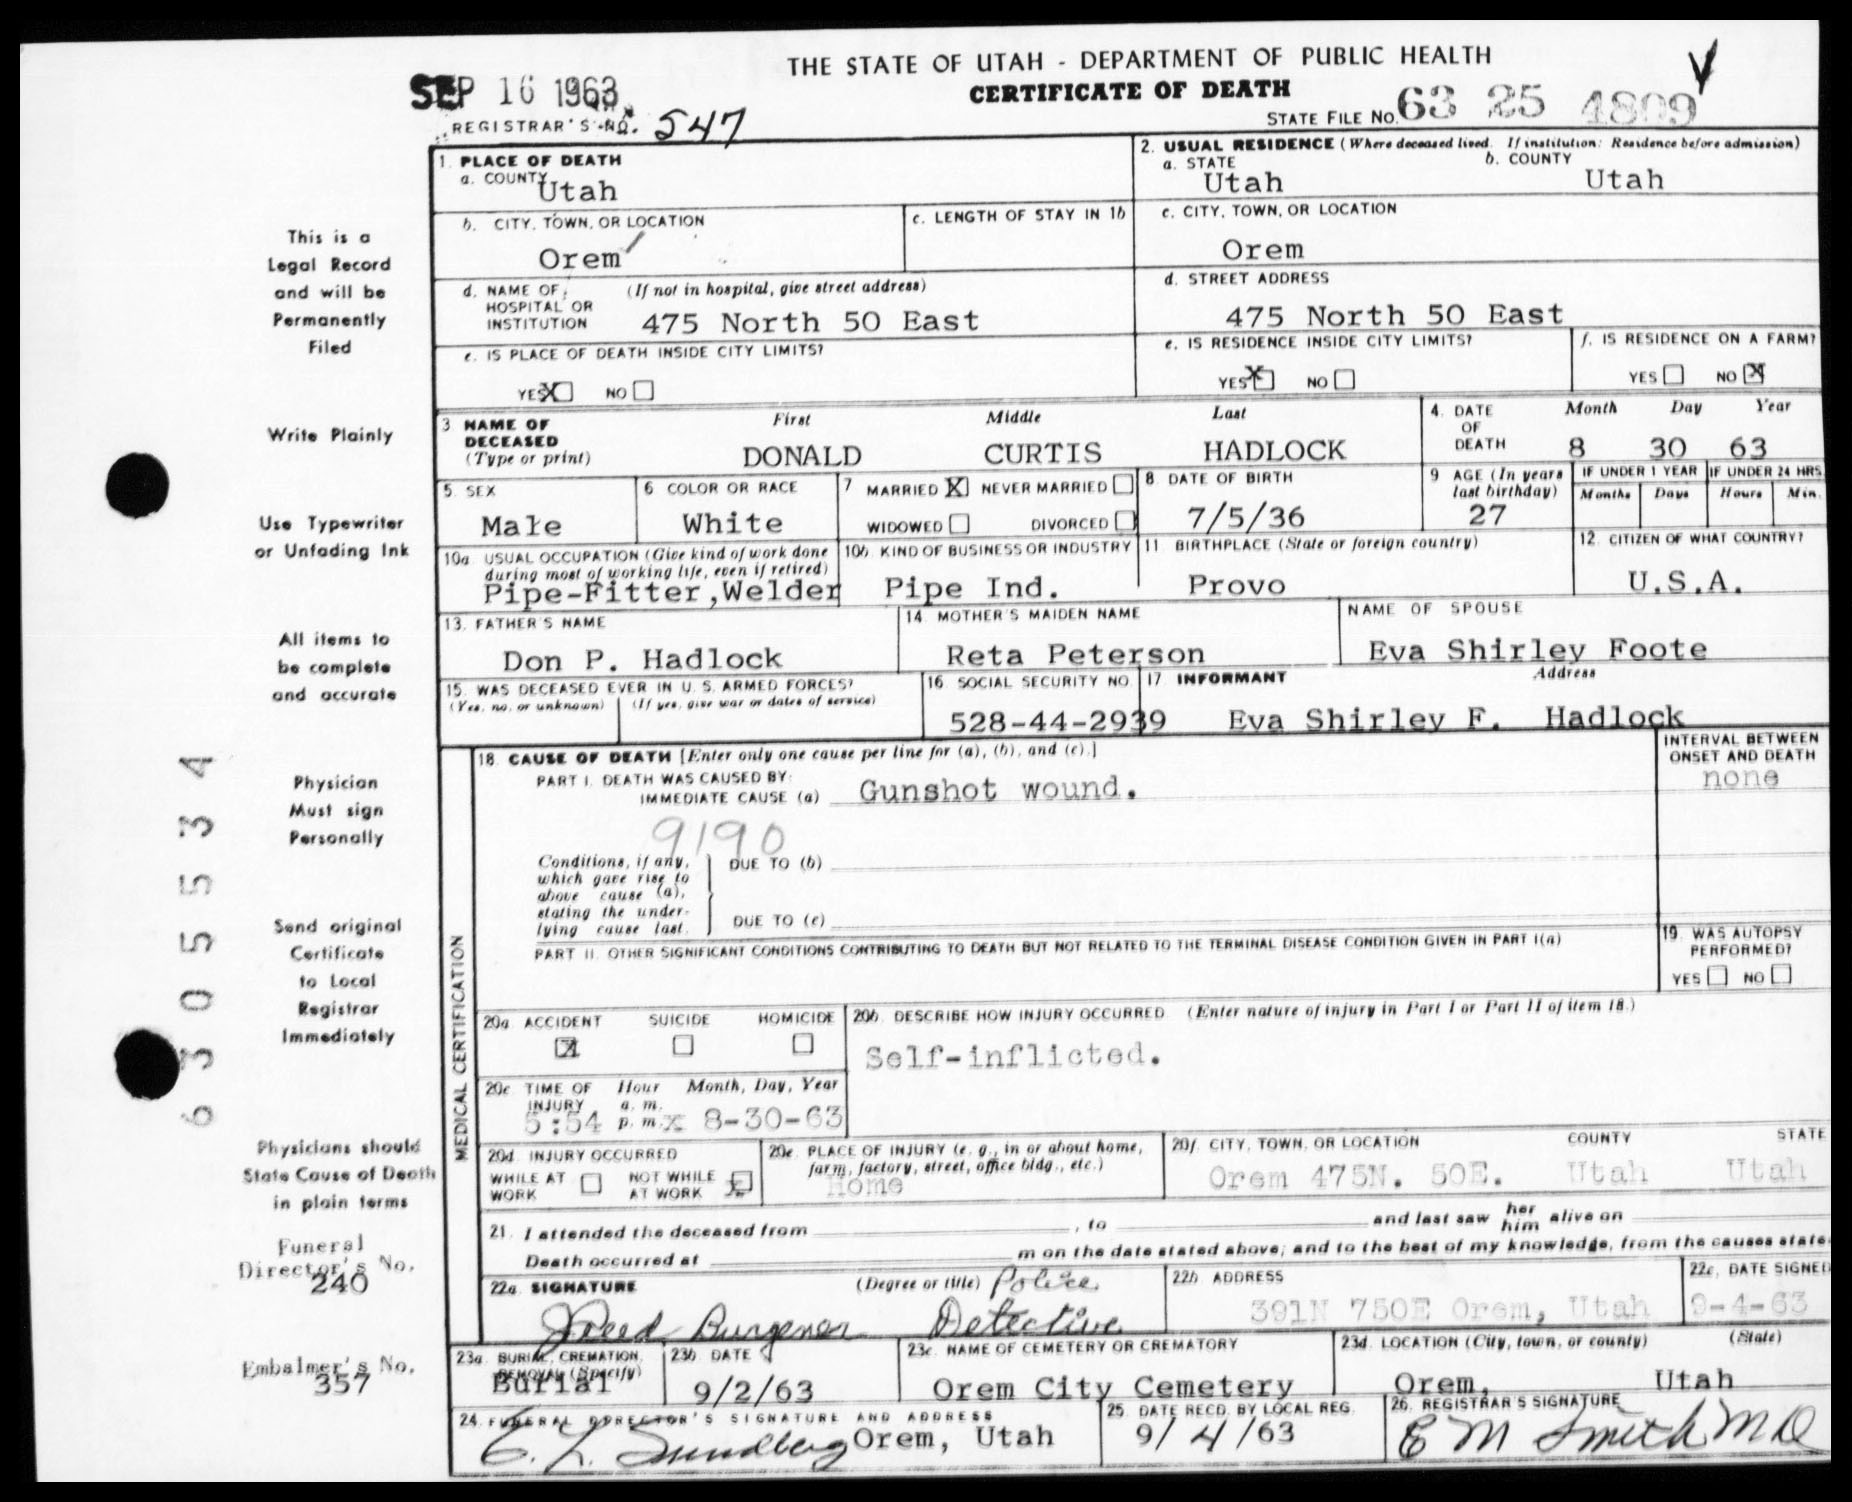 THE STATE OF UTAH - DEPARTMENT OF PUBLIC HEALTH
CERTIFICATE OF DEATH
SEP 16 1963
REGISTRAR'S NO. 547
STATE FILE NO. 63 25 4809
1. PLACE OF DEATH
a. COUNTY
Utah
2. USUAL RESIDENCE (Where deceased lived. If institution: Residence before admission)
a. STATE b. COUNTY
Utah Utah
b. CITY, TOWN, OR LOCATION
Orem
c. LENGTH OF STAY IN 1b
c. CITY, TOWN, OR LOCATION
Orem
d. NAME OF (If not in hospital, give street address)
HOSPITAL OR
INSTITUTION 475 North 50 East
d. STREET ADDRESS
475 North 50 East
e. IS PLACE OF DEATH INSIDE CITY LIMITS?
YES X NO
e. IS RESIDENCE INSIDE CITY LIMITS?
YES X NO
f. IS RESIDENCE ON A FARM?
YES NO X
3 NAME OF DECEASED (Type or print)
First Middle Last
DONALD CURTIS HADLOCK
4. DATE OF DEATH
Month Day Year
8 30 63
5. SEX
Male
6 COLOR OR RACE
White
7 MARRIED X NEVER MARRIED
WIDOWED DIVORCED
8. DATE OF BIRTH
7/5/36
9 AGE (In years last birthday)
27
IF UNDER 1 YEAR
Months Days
IF UNDER 24 HRS.
Hours Min.
10a. USUAL OCCUPATION (Give kind of work done
during most of working life, even if retired)
Pipe-Fitter,Welder
10b. KIND OF BUSINESS OR INDUSTRY
Pipe Ind.
11. BIRTHPLACE (State or foreign country)
Provo
12. CITIZEN OF WHAT COUNTRY?
U.S.A.
13. FATHER'S NAME
Don P. Hadlock
14. MOTHER'S MAIDEN NAME
Reta Peterson
NAME OF SPOUSE
Eva Shirley Foote
15. WAS DECEASED EVER IN U. S. ARMED FORCES?
(Yes, no, or unknown) (If yes, give war or dates of service)
16. SOCIAL SECURITY NO.
528-44-2939
17 INFORMANT Address
Eva Shirley F. Hadlock
MEDICAL CERTIFICATION
18. CAUSE OF DEATH [Enter only one cause per line for (a), (b), and (c).]
PART I. DEATH WAS CAUSED BY:
IMMEDIATE CAUSE (a) Gunshot wound.
INTERVAL BETWEEN
ONSET AND DEATH
none
9190
Conditions, if any,
which gave rise to
above cause (a),
stating the under-
lying cause last.
DUE TO (b)
DUE TO (c)
PART II. OTHER SIGNIFICANT CONDITIONS CONTRIBUTING TO DEATH BUT NOT RELATED TO THE TERMINAL DISEASE CONDITION GIVEN IN PART I(a)
19. WAS AUTOPSY
PERFORMED?
YES NO
20a. ACCIDENT SUICIDE HOMICIDE
X
20b. DESCRIBE HOW INJURY OCCURRED. (Enter nature of injury in Part I or Part II of item 18.)
Self-inflicted.
20c. TIME OF INJURY Hour Month, Day, Year
a. m.
5:54 p. m. x 8-30-63
20d. INJURY OCCURRED
WHILE AT WORK NOT WHILE AT WORK X
20e. PLACE OF INJURY (e. g., in or about home,
farm, factory, street, office bldg., etc.)
Home
20f. CITY, TOWN, OR LOCATION COUNTY STATE
Orem 475N. 50E. Utah Utah
21. I attended the deceased from , to and last saw her him alive on
Death occurred at m on the date stated above; and to the best of my knowledge, from the causes state
22a. SIGNATURE (Degree or title)
J Reed Burgener Police Detective
22b. ADDRESS
391N 750E Orem, Utah
22c. DATE SIGNED
9-4-63
23a. BURIAL, CREMATION,
REMOVAL (Specify)
Burial
23b. DATE
9/2/63
23c. NAME OF CEMETERY OR CREMATORY
Orem City Cemetery
23d. LOCATION (City, town, or county) (State)
Orem, Utah
24. FUNERAL DIRECTOR'S SIGNATURE AND ADDRESS
E. L. Sundberg Orem, Utah
25. DATE RECD. BY LOCAL REG.
9/4/63
26. REGISTRAR'S SIGNATURE
E M Smith MD
This is a
Legal Record
and will be
Permanently
Filed
Write Plainly
Use Typewriter
or Unfading Ink
All items to
be complete
and accurate
Physician
Must sign
Personally
Send original
Certificate
to Local
Registrar
Immediately
Physicians should
State Cause of Death
in plain terms
Funeral
Director's No.
240
Embalmer's No.
357
63055534